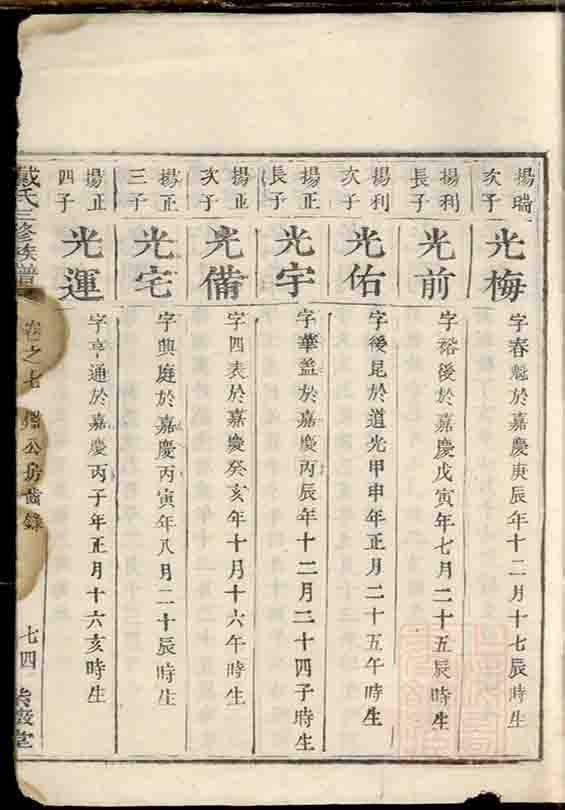 揚瑞
次子
光梅
字春魁於嘉慶庚辰年十二月十七辰時生
揚利
長子
光前
字裕後於嘉慶戊寅年七月二十五辰時生
揚利
次子
光佑
字後昆於道光甲申年正月二十五午時生
揚正
長子
光宇
字華蓋於嘉慶丙辰年十二月二十四子時生
揚正
次子
光備
字四表於嘉慶癸亥年十月十六午時生
揚正
三子
光宅
字興庭於嘉慶丙寅年八月二十辰時生
揚正
四子
光運
字亨通於嘉慶丙子年正月十六亥時生
戴氏三修族譜
卷之七
公房齒錄
七四
堂